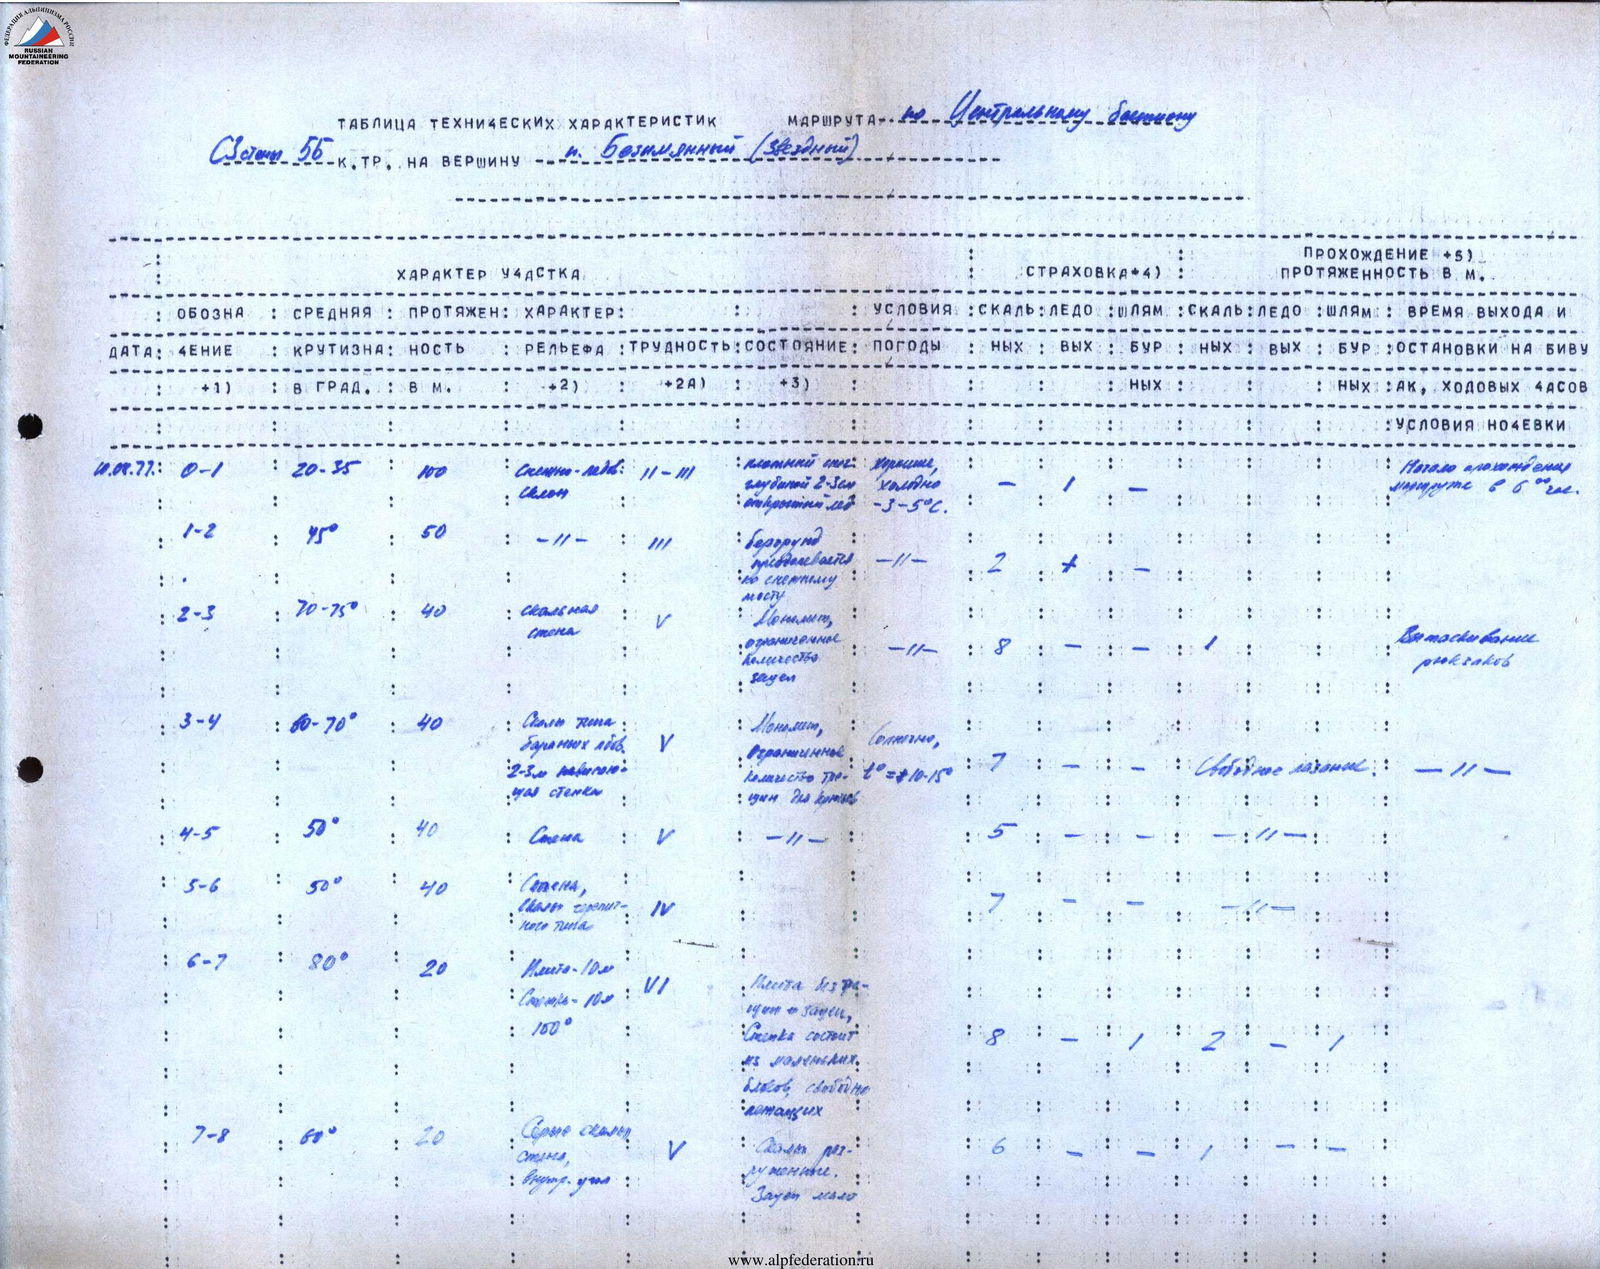 ФЕДЕРАЦИЯ АЛЬПИНИЗМА РОССИИ
RUSSIAN
MOUNTAINEERING
FEDERATION
ТАБЛИЦА ТЕХНИ4ЕСКИХ ХАРАКТЕРИСТИК МАРШРУТА по Центральному бастиону
СЗ стены 5Б К.ТР. НА ВЕРШИНУ п. Безымянный (Звездный)
ХАРАКТЕР У4АСТКА
СТРАХОВКА+4)
ПРОХОЖДЕНИЕ +5)
ПРОТЯЖЕННОСТЬ В М.
: ОБОЗНА : СРЕДНЯЯ : ПРОТЯЖЕН: ХАРАКТЕР: : : УСЛОВИЯ :СКАЛЬ:ЛЕДО :ШЛЯМ :СКАЛЬ:ЛЕДО :ШЛЯМ : ВРЕМЯ ВЫХОДА И
ДАТА: 4ЕНИЕ : КРУТИЗНА: НОСТЬ : РЕЛЬЕФА :ТРУДНОСТЬ:СОСТОЯНИЕ: ПОГОДЫ : НЫХ : ВЫХ : БУР : НЫХ : ВЫХ : БУР :ОСТАНОВКИ НА БИВУ
: +1) : В ГРАД. : В М. : +2) : +2А) : +3) : : : : НЫХ : : : НЫХ :АК, ХОДОВЫХ 4АСОВ
:УСЛОВИЯ НО4ЕВКИ
0-1 20-35 100 Снежно-ледов. склон II-III плотный снег глубиной 2-3см открытый лед хорошие, холодно -3-5°С. - 1 - Начало прохождения маршрута в 6 00 час.
1-2 45° 50 -//- III бергшрунд преодолевается по снежному мосту -//- 2 + -
2-3 70-75° 40 скальная стена V Монолит, ограниченное количество зацеп -//- 8 - - 1 Вытаскивание рюкзаков
3-4 60-70° 40 Скалы типа бараньих лбов. 2-3м нависающая стенка V Монолит, ограниченное количество трещин для крючьев Солнечно, t°=+10-15° 7 - - Свободное лазание. -//-
4-5 50° 40 Стена V -//- 5 - - -//-
5-6 50° 40 Стена, скалы черепичного типа IV 7 - - -//-
6-7 80° 20 Плита-10м Стенка-10м 100° VI Плита без трещин и зацеп, Стенка состоит из маленьких блоков, свободно лежащих 8 - 1 2 - 1
7-8 60° 20 Серые скалы, стена, внутр. угол V Скалы разрушенные. Зацеп мало 6 - - 1 - -
www.alpfederation.ru